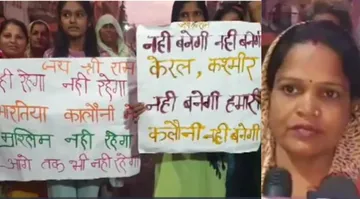 जय श्री राम
नहीं रहेगा नहीं रहेगा
भारतिया कालौनी में
मुस्लिम नहीं रहेगा
आगे तक भी नहीं रहेगा
नहीं बनेगी नहीं बनेगी
केरल, कश्मीर
नहीं बनेगी हमारी
कलौनी नहीं बनेगी